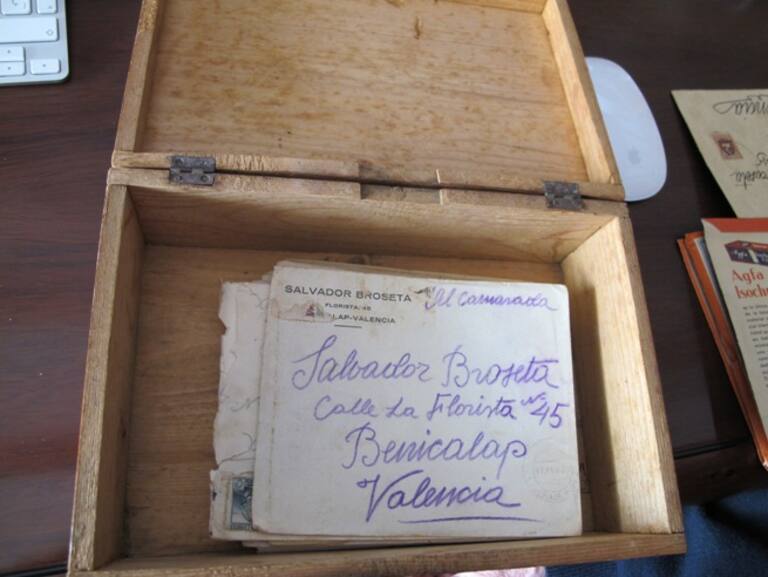 SALVADOR BROSETA
FLORISTA, 45
LAP-VALENCIA
Al Camarada
Salvador Broseta
Calle La Florista Nº 45
Benicalap
Valencia
Agfa
Isochr